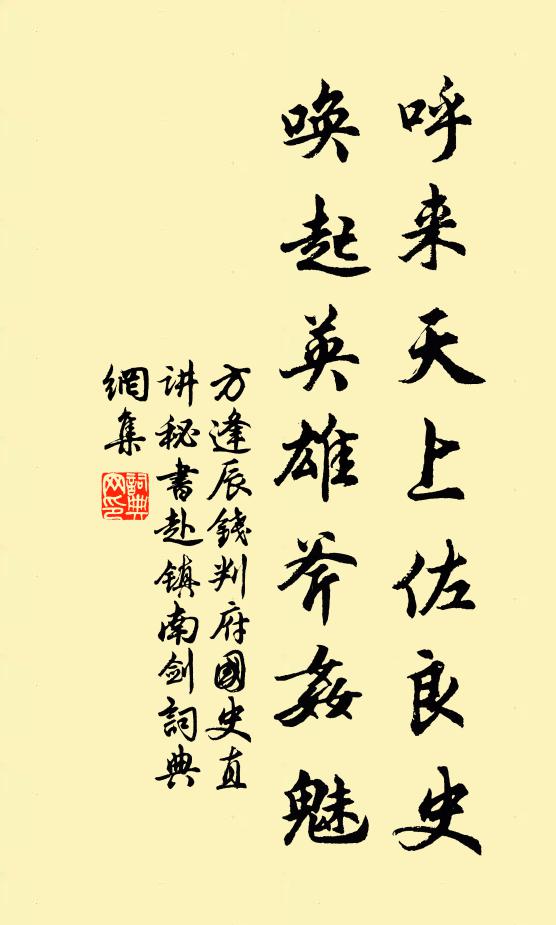 呼来天上佐良史
唤起英雄斧姦魅
方逢辰錢判府國史直
讲秘書赴镇南剑詞典
網集
詞典
网印